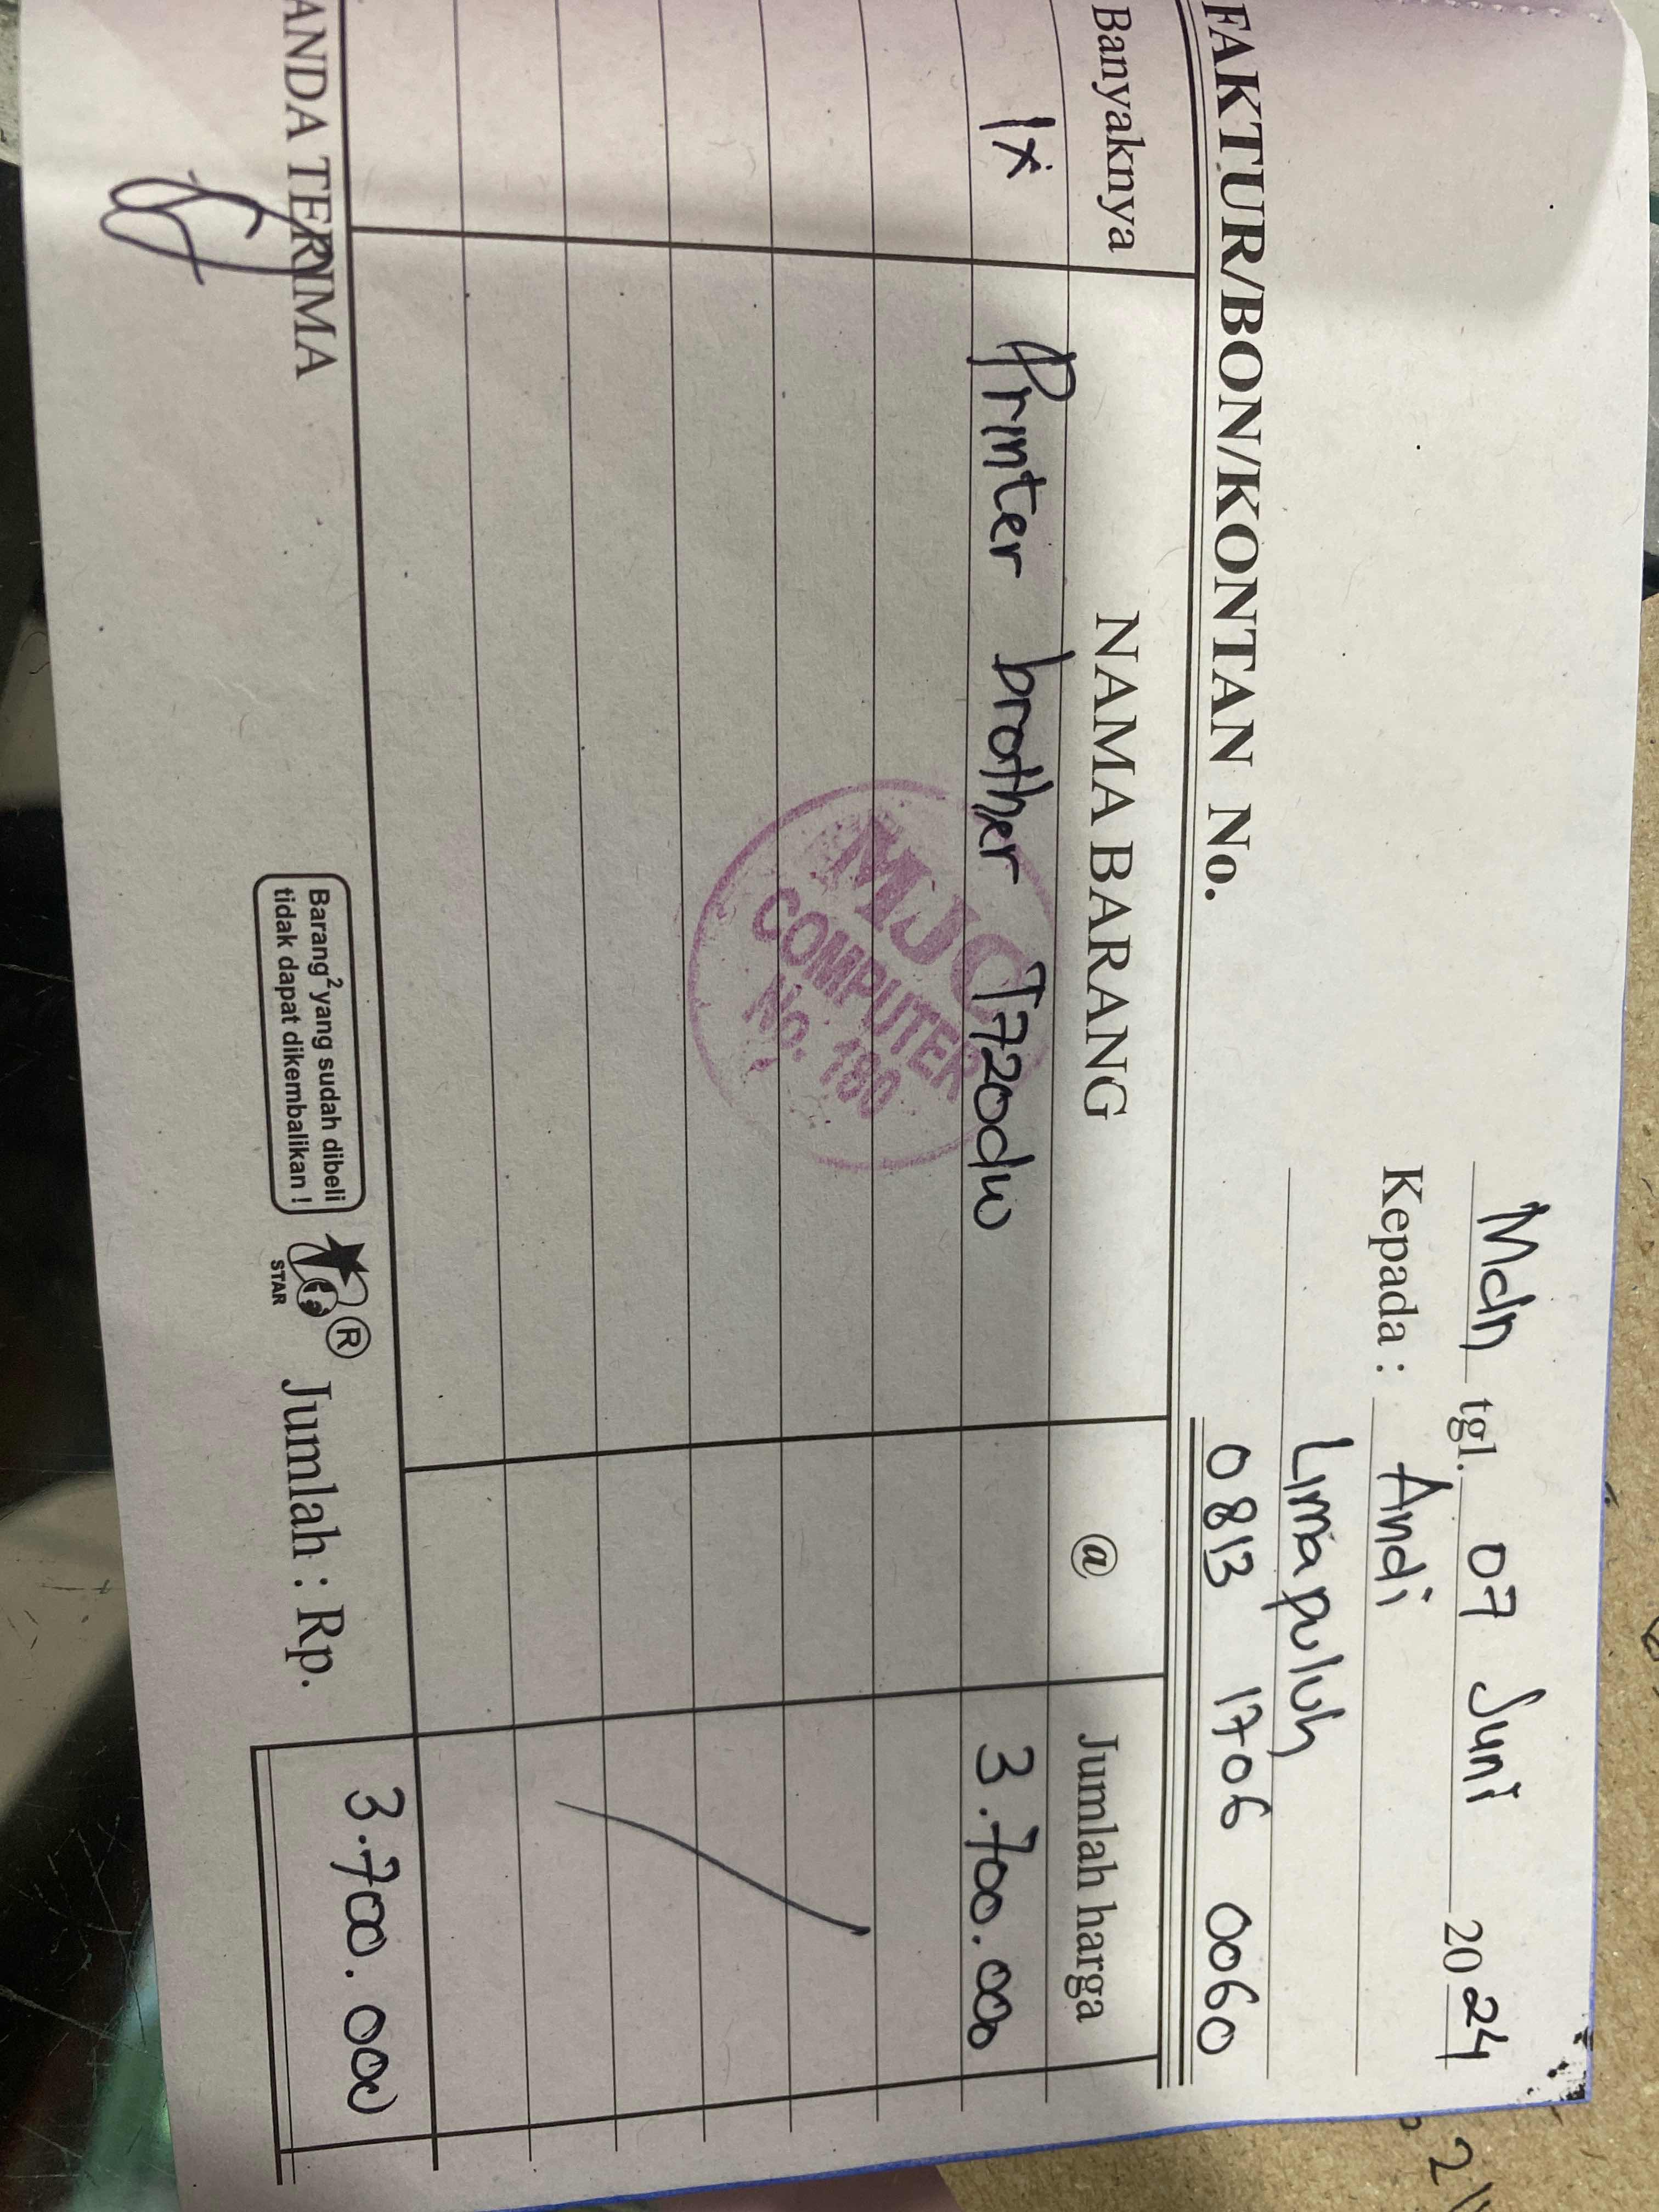 Mdn tgl. 07 Juni 2024
Kepada : Andi
Limapuluh
0813 1706 0060
FAKTUR/BON/KONTAN No.
Banyaknya NAMA BARANG @ Jumlah harga
1x Printer brother T720dw 3.700.000
MJC
COMPUTER
No. 180
ANDA TERIMA
Barang² yang sudah dibeli
tidak dapat dikembalikan !
STAR
®
Jumlah : Rp. 3.700.000